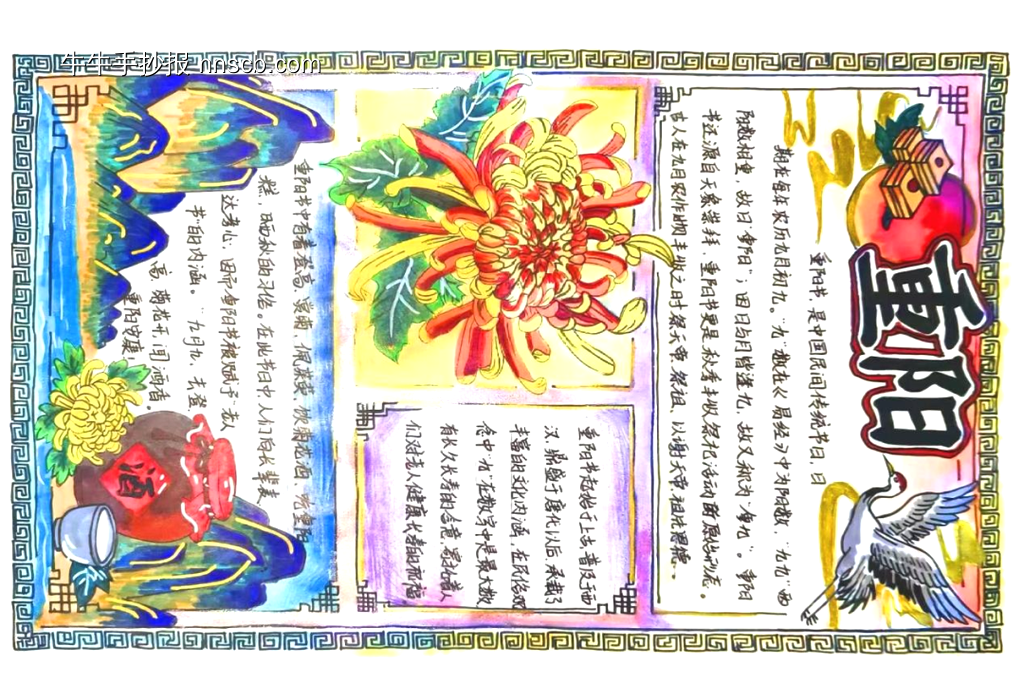 牛牛手抄报 hnscb.com
重阳
重阳节,是中国民间传统节日,日
期在每年农历九月初九。"九"数在《易经》中为阳数,"九九"两
阳数相重,故曰"重阳";因日与月皆逢九,故又称为"重九"。重阳
节还源自天象崇拜,重阳节更是秋季丰收祭祀活动的原始形态。
古人在九月农作物丰收之时祭天帝、祭祖,以谢天帝、祖先恩德。
重阳节起始于上古,普及于西
汉,鼎盛于唐代以后,承载了
丰富的文化内涵,在民俗观
念中"九"在数字中是最大数
有长久长寿的含意,寄托着人
们对老人健康长寿的祈福
重阳节中有着登高、赏菊、佩茱萸、饮菊花酒、吃重阳
糕、晒秋的习俗。在此节日中,人们向长辈表
达孝心,因而重阳节被赋予"老人
节"的内涵。"九月九,去登
高,菊花开,闻酒香。
重阳安康,
酒